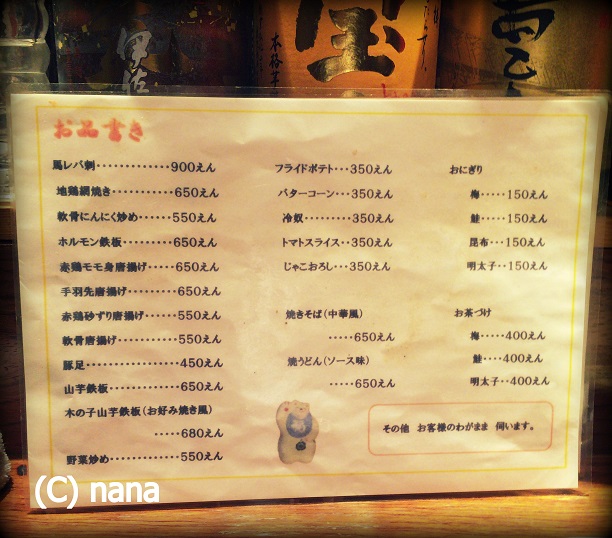 伊佐
本格芋
お品書き
馬レバ刺・・・・・・・・・・・・・・900えん
地鶏網焼き・・・・・・・・・・・・650えん
軟骨にんにく炒め・・・・・・550えん
ホルモン鉄板・・・・・・・・・・650えん
赤鶏モモ身唐揚げ・・・・・650えん
手羽先唐揚げ・・・・・・・・・650えん
赤鶏砂ずり唐揚げ・・・・・550えん
軟骨唐揚げ・・・・・・・・・・・550えん
豚足・・・・・・・・・・・・・・・・・450えん
山芋鉄板・・・・・・・・・・・・・650えん
木の子山芋鉄板(お好み焼き風)
・・・・・680えん
野菜炒め・・・・・・・・・・・・・550えん
フライドポテト・・・350えん
バターコーン・・・・350えん
冷奴・・・・・・・・・350えん
トマトスライス・・350えん
じゃこおろし・・・350えん
焼きそば(中華風)
・・・・・650えん
焼うどん(ソース味)
・・・・・650えん
おにぎり
梅・・・・・150えん
鮭・・・・・150えん
昆布・・・150えん
明太子・・150えん
お茶づけ
梅・・・・・400えん
鮭・・・・400えん
明太子・・400えん
その他 お客様のわがまま 伺います。
(C) nana